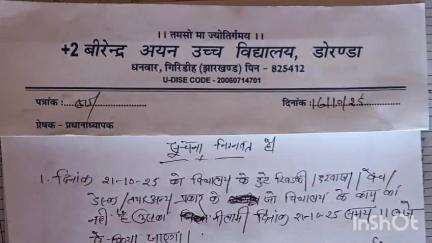 ।। तमसो मा ज्योतिर्गमय ।।
+2 बीरेन्द्र अयन उच्च विद्यालय, डोरण्डा
धनवार, गिरिडीह (झारखण्ड) पिन - 825412
U-DISE CODE - 20060714701
पत्रांक : दिनांक : 16/10/25
प्रेषक - प्रधानाध्यापक
सूचना निम्नवत है
1. दिनांक 21-10-25 को विद्यालय के टुटे खिडकी / दरवाजा / बेंच
डेस्क / तथा अन्य प्रकार के जो विद्यालय के काम का
नहीं है उसका निलामी दिनांक 21-10-25 समय 11 बजे
से किया जाएगा।
InShot